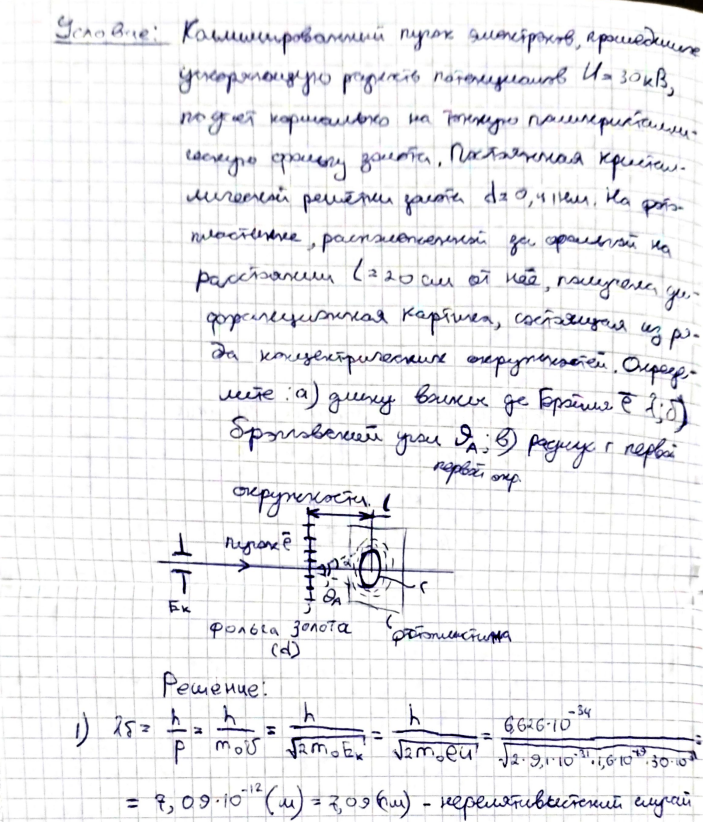 Условие: Коллимированный пучок электронов, прошедших
ускоряющую разность потенциалов U = 30кВ,
падает нормально на тонкую поликристалли-
ческую фольгу золота. Постоянная кристал-
лической решётки золота d = 0,41нм. На фото-
пластинке, расположенной за фольгой на
расстоянии l = 20 см от неё, получена ди-
фракционная картина, состоящая из ря-
да концентрических окружностей. Опреде-
лите: а) длину волны де Бройля ē λ; б)
Брэгговский угол θ_A; в) радиус r первой
первой окр.
окружности. l
пучок ē
E_k
θ_A
r
фольга золота
(d)
фотопластина
Решение:
1) λб = h/p = h/(m₀υ) = h/√(2m₀E_k) = h/√(2m₀eU) = 6,626·10⁻³⁴/√(2·9,1·10⁻³¹·1,6·10⁻¹⁹·30·10³) =
= 7,09·10⁻¹² (м) = 7,09(пм) – нерелятивистский случай